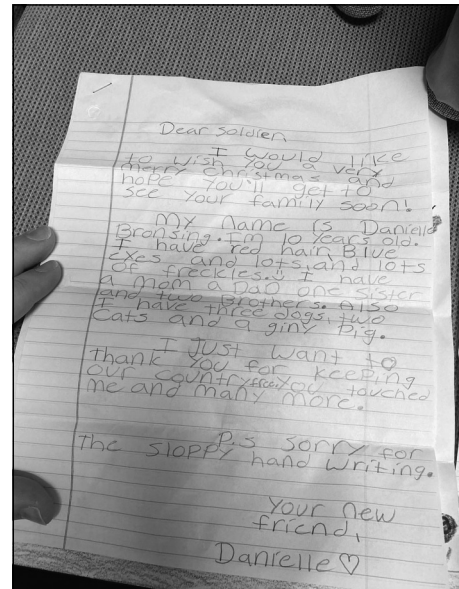 Dear Soldier
I would like
to wish you a very
merry christmas and
hope you'll get to
see your family soon!
My name is Danielle
Bronsing. I'm 10 years old.
I have red hair, Blue
eyes and lots, and lots
of freckles. I have
a mom a DaD one sister
and two Brothers. Also
I have three dogs, two
cats and a giny pig.
I Just want to
thank you for keeping
our country free. You touched
me and many more.
P.S sorry for
The sloppy hand writing.
Your new
friend,
Danielle♡